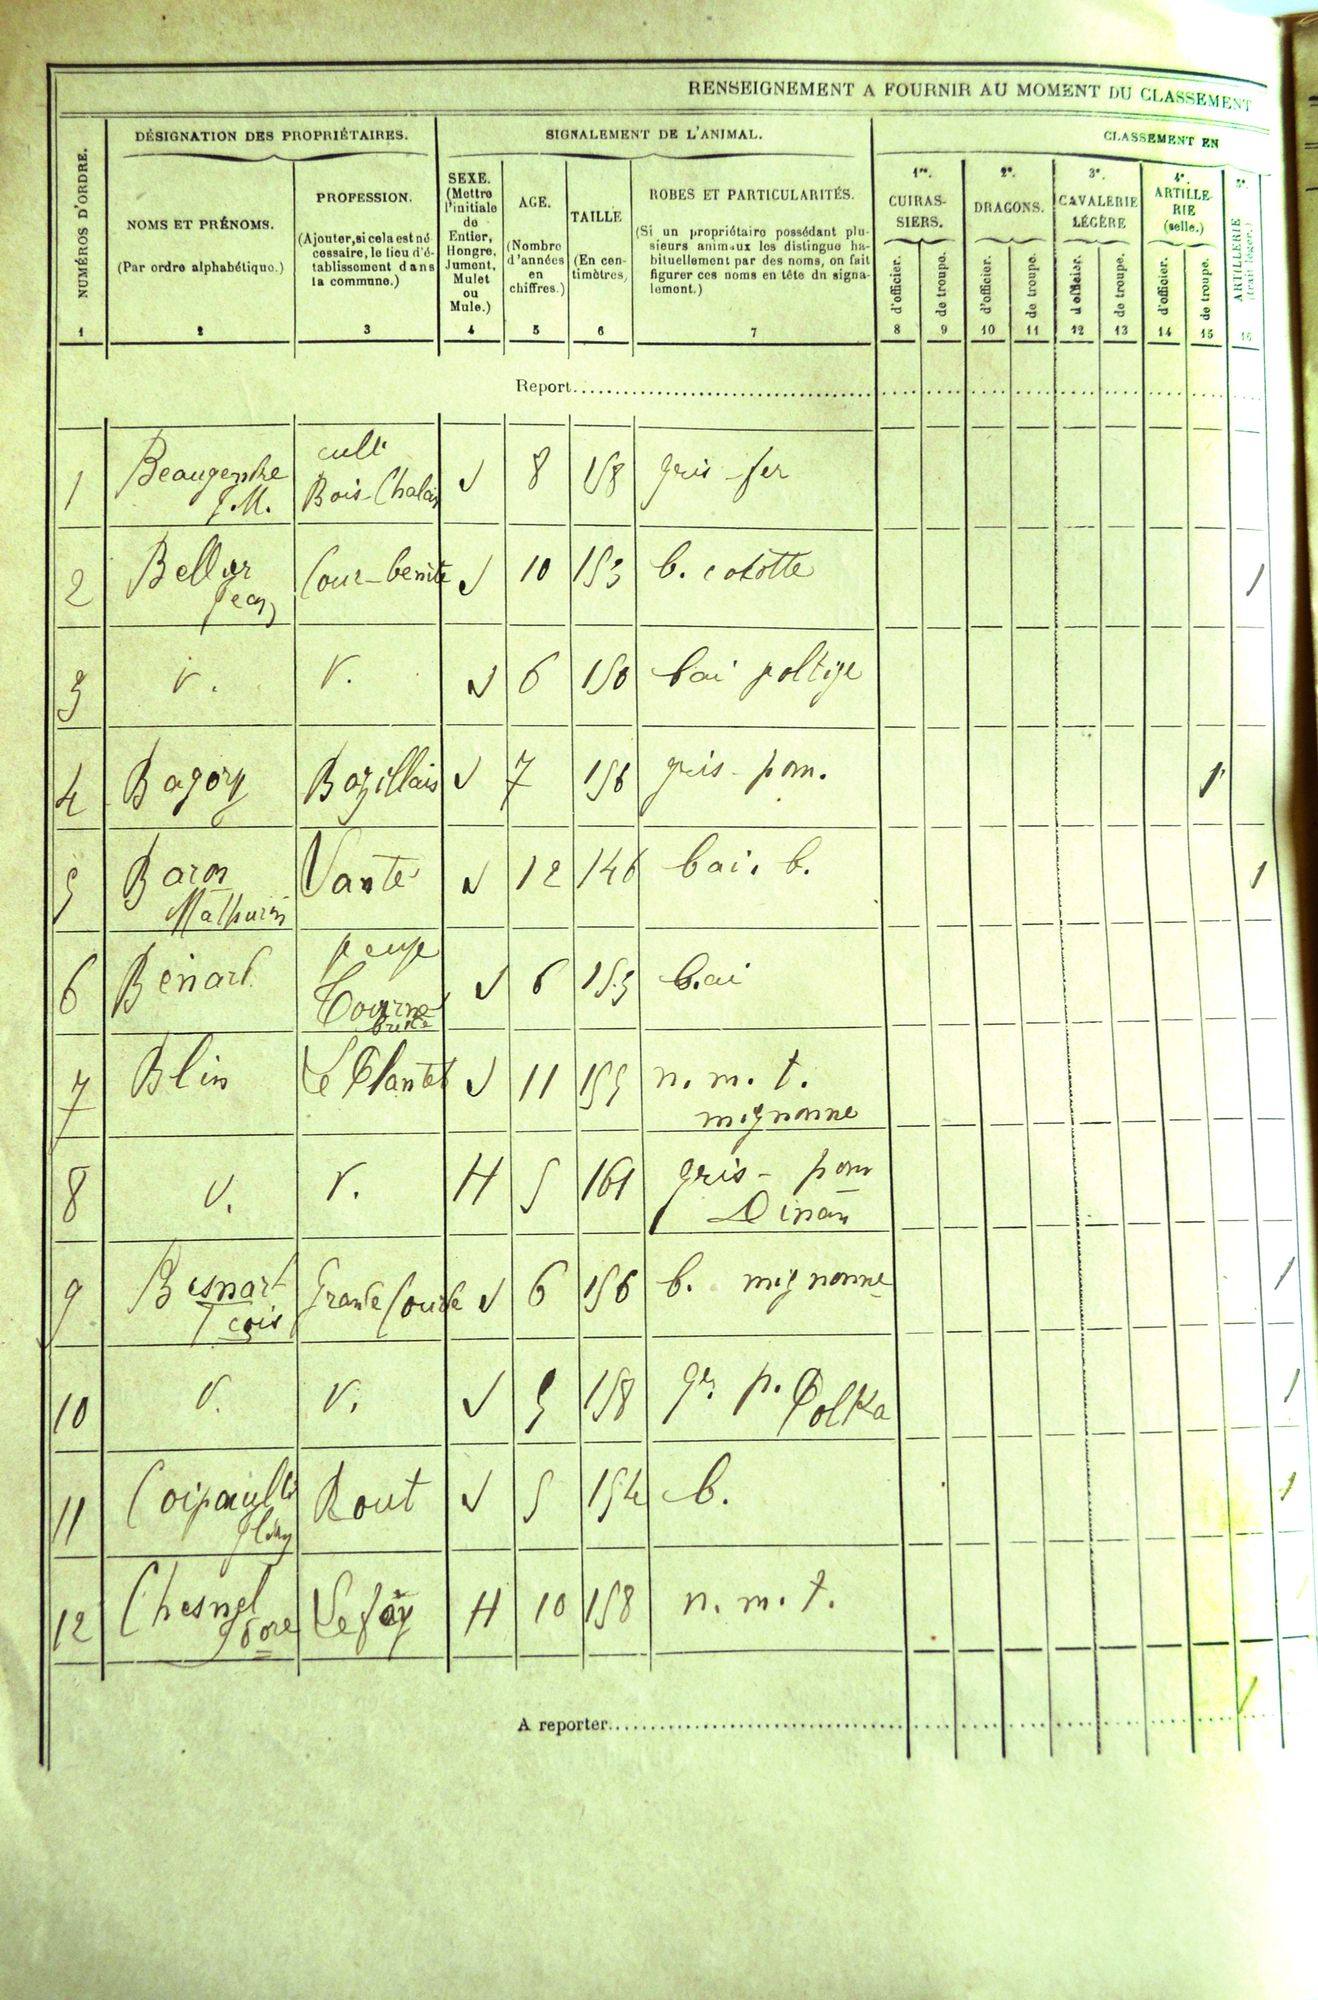 RENSEIGNEMENT A FOURNIR AU MOMENT DU CLASSEMENT
NUMÉROS D'ORDRE.
DÉSIGNATION DES PROPRIÉTAIRES.
SIGNALEMENT DE L'ANIMAL.
CLASSEMENT EN
NOMS ET PRÉNOMS.
(Par ordre alphabétique.)
PROFESSION.
(Ajouter, si cela est né
cessaire, le lieu d'é-
tablissement dans
la commune.)
SEXE.
(Mettre
l'initiale
de
Entier,
Hongre,
Jument,
Mulet
ou
Mule.)
AGE.
(Nombre
d'années
en
chiffres.)
TAILLE
(En cen-
timètres,
ROBES ET PARTICULARITÉS.
(Si un propriétaire possédant plu-
sieurs animaux les distingue ha-
bituellement par des noms, on fait
figurer ces noms en tête du signa-
lement.)
1re.
CUIRAS-
SIERS.
d'officier.
de troupe.
2e.
DRAGONS.
d'officier.
de troupe.
3e.
CAVALERIE
LÉGÈRE
d'officier.
de troupe.
4e.
ARTILLE-
RIE
(selle.)
d'officier.
de troupe.
5e.
ARTILLERIE
(trait léger.)
1 2 3 4 5 6 7 8 9 10 11 12 13 14 15 16
Report
1 Beaugendre J.M. cult Bois-Chalais J 8 158 gris fer
2 Bellier Jean Cour-benite J 10 153 b. cocotte 1
3 V. V. J 6 150 bai voltige
4 Bagory Bazillais J 7 156 gris-pom. 1
5 Baron Mathurin J 12 146 bai. b. 1
6 Bénard J 6 153 bai
7 Blin Le Plantet J 11 155 n. m. t.
mignonne
8 V. V. H 5 161 gris-pom
Dinan
9 Besnard Fcois Grande J 6 156 b. mignonne 1
10 V. V. J 5 158 gr. p. Polka 1
11 Rout J 5 154 b. 1
12 Chesnel H 10 158 n. m. t.
A reporter